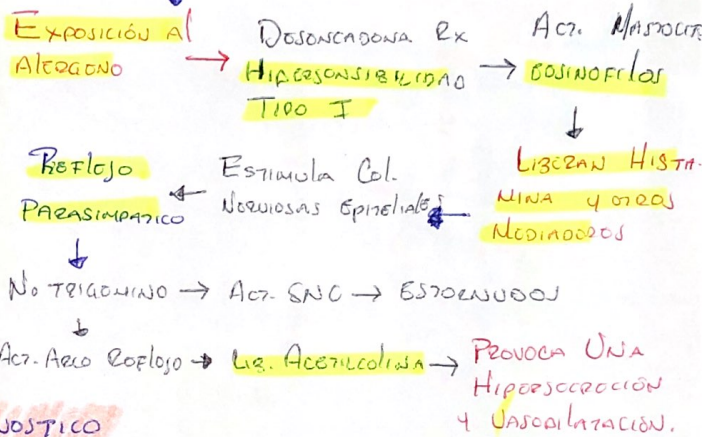 EXPOSICIÓN Al
AlERGENO
→ DESENCADENA Rx
HIPERSENSIBILIDAD
TIPO I
→ ACT. MASTOCITO
EOSINOFILOS
↓
LIBERAN HISTA-
MINA y OTROS
MEDIADORES
← ESTIMULA Cel.
NERVIOSAS EPITELIALES
← REFLEJO
PARASIMPATICO
↓
No TRIGEMINO → ACT. SNC → ESTORNUDOS
↓
ACT. ARCO REFLEJO → LIB. ACETILCOLINA → PROVOCA UNA
HIPERSECRECIÓN
Y VASODILATACIÓN.
NOSTICO